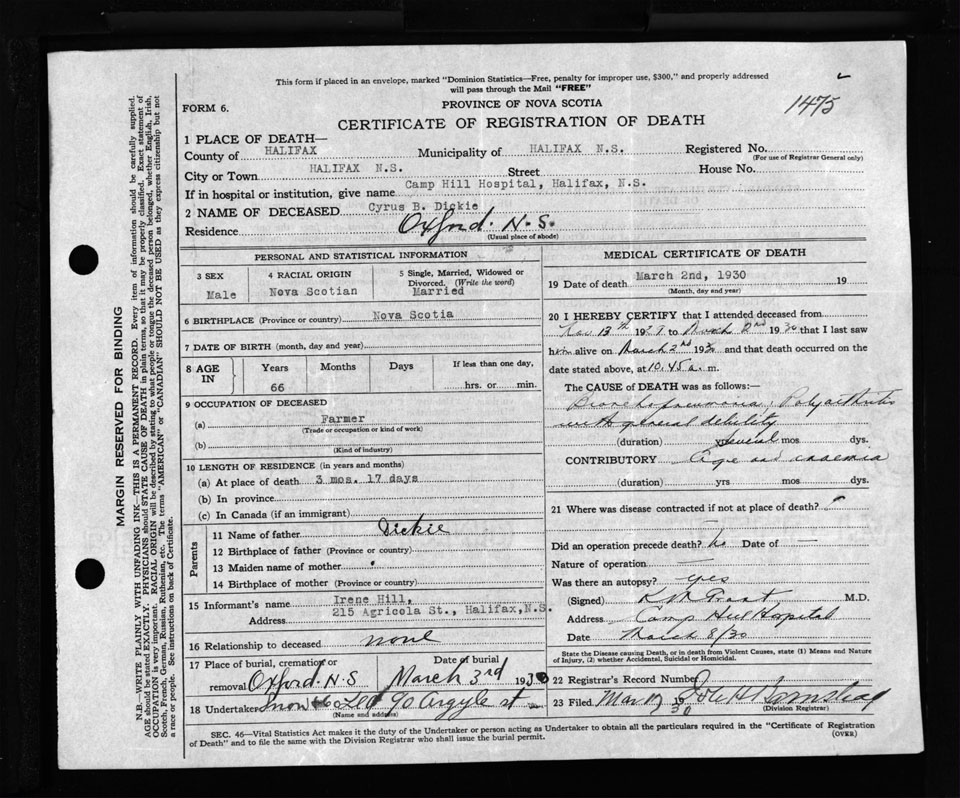 This form if placed in an envelope, marked "Dominion Statistics—Free, penalty for improper use, $300," and properly addressed
will pass through the Mail "FREE"
1475
FORM 6.
PROVINCE OF NOVA SCOTIA
CERTIFICATE OF REGISTRATION OF DEATH
1 PLACE OF DEATH—
County of HALIFAX Municipality of HALIFAX N.S. Registered No.
(For use of Registrar General only)
City or Town HALIFAX N.S. Street House No.
If in hospital or institution, give name Camp Hill Hospital, Halifax, N.S.
2 NAME OF DECEASED Cyrus B. Dickie
Residence Oxford N.S.
(Usual place of abode)
PERSONAL AND STATISTICAL INFORMATION
3 SEX Male
4 RACIAL ORIGIN Nova Scotian
5 Single, Married, Widowed or Divorced. (Write the word) Married
6 BIRTHPLACE (Province or country) Nova Scotia
7 DATE OF BIRTH (month, day and year)
8 AGE IN Years 66 Months Days If less than one day, hrs. or min.
9 OCCUPATION OF DECEASED
(a) Farmer
(Trade or occupation or kind of work)
(b)
(Kind of industry)
10 LENGTH OF RESIDENCE (in years and months)
(a) At place of death 3 mos. 17 days
(b) In province
(c) In Canada (if an immigrant)
Parents
11 Name of father Dickie
12 Birthplace of father (Province or country)
13 Maiden name of mother
14 Birthplace of mother (Province or country)
15 Informant's name Irene Hill,
Address 215 Agricola St., Halifax, N.S.
16 Relationship to deceased none
17 Place of burial, cremation or removal Oxford. N.S Date of burial March 3rd 1930
18 Undertaker Snow & Co Ltd 90 Argyle st
(Name and address)
MEDICAL CERTIFICATE OF DEATH
19 Date of death March 2nd, 1930 19
(Month, day and year)
20 I HEREBY CERTIFY that I attended deceased from
13th 19 to March 2nd 1930 that I last saw
him alive on March 2nd 1930 and that death occurred on the
date stated above, at 10.45 a. m.
The CAUSE OF DEATH was as follows:—
Bronchopneumonia, Polyarthritis
with general debility
(duration) yrs several mos dys.
CONTRIBUTORY Age and anaemia
(duration) yrs mos dys.
21 Where was disease contracted if not at place of death?
Did an operation precede death? No Date of —
Nature of operation —
Was there an autopsy? yes
(Signed) K M Grant M.D.
Address Camp Hill Hospital
Date March 8/30
State the Disease causing Death, or in death from Violent Causes, state (1) Means and Nature
of Injury, (2) whether Accidental, Suicidal or Homicidal.
22 Registrar's Record Number
23 Filed Mar 19 30
(Division Registrar)
SEC. 46—Vital Statistics Act makes it the duty of the Undertaker or person acting as Undertaker to obtain all the particulars required in the "Certificate of Registration
of Death" and to file the same with the Division Registrar who shall issue the burial permit.
(OVER)
MARGIN RESERVED FOR BINDING
N.B.—WRITE PLAINLY WITH UNFADING INK—THIS IS A PERMANENT RECORD. Every item of information should be carefully supplied.
AGE should be stated EXACTLY. PHYSICIANS should STATE CAUSE OF DEATH in plain terms, so that it may be properly classified. Exact statement of
OCCUPATION is very important. RACIAL ORIGIN will be described by stating to what people or tongue the deceased person belonged, whether English, Irish,
Scotch, French, German, Russian, Ruthenian, etc. The terms "AMERICAN" or "CANADIAN" SHOULD NOT BE USED as they express citizenship but not
a race or people. See instructions on back of Certificate.